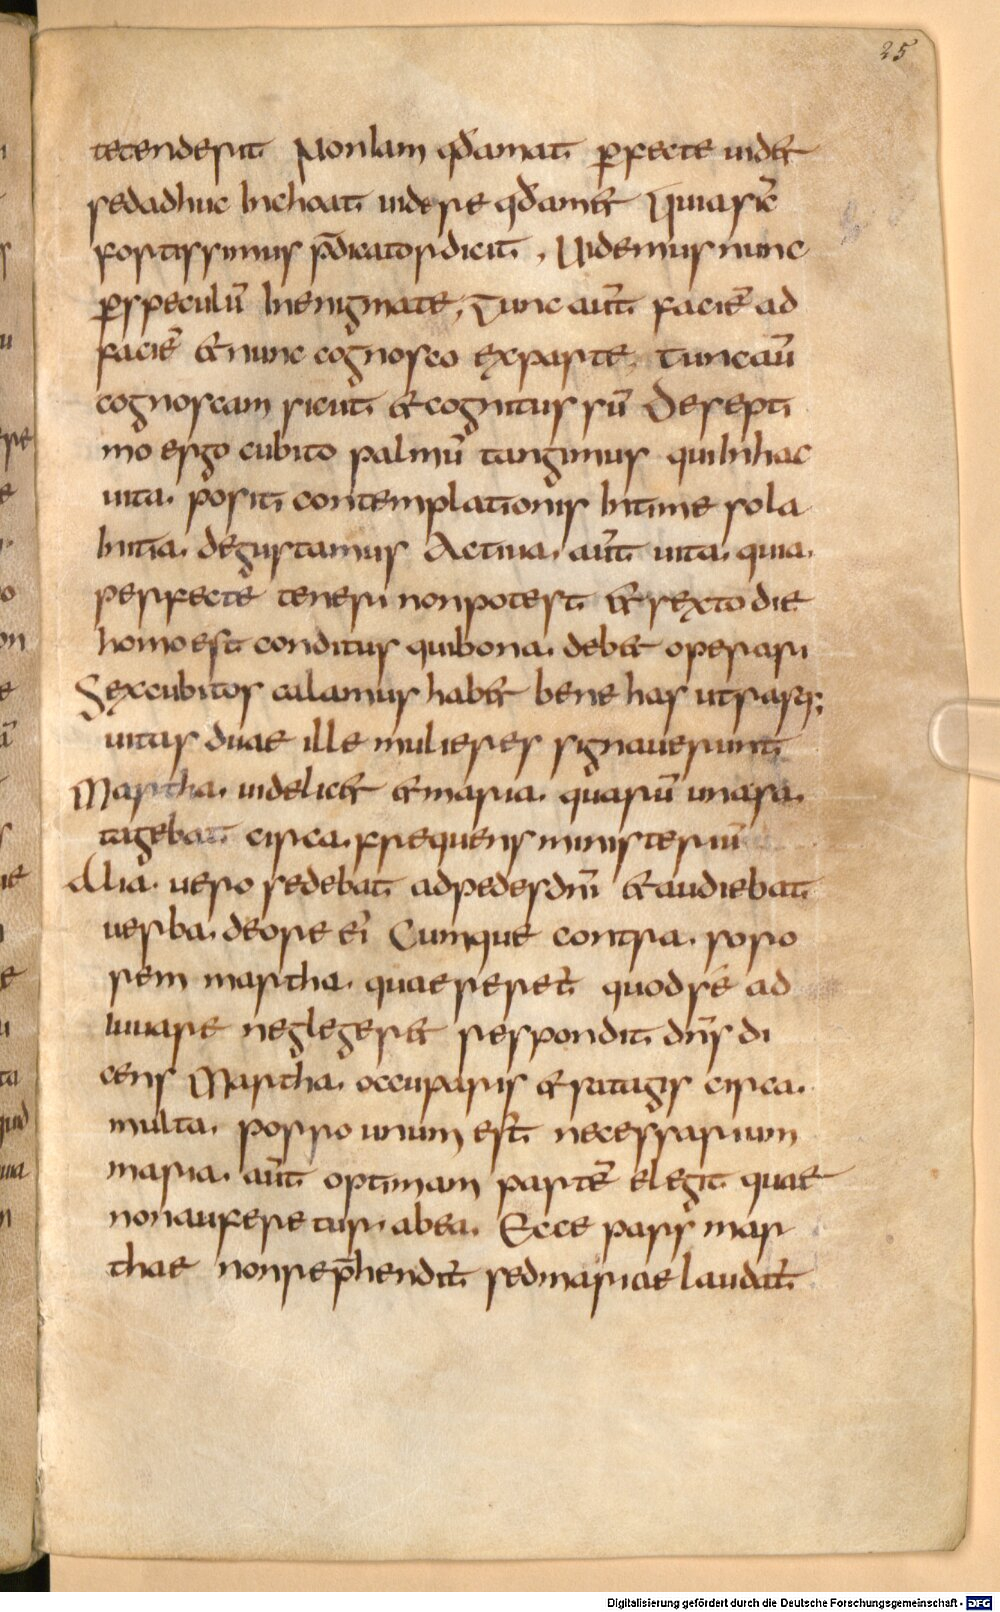 25
tetenderit Non iam qđ amat ꝑfecte uidet
sed adhuc inchoat uidere qđ amet Quia sic̄
fortissimus p̄dicator dicit, Uidemus nunc
ꝑ speculū in enigmate, Tunc aūt faciē ad
faciē et nunc cognosco ex parte, tunc aū
cognoscam sicut et cognitus sū De septi
mo ergo cubito palmū tangimus qui in hac
uita positi contemplationis intime sola
initia degustamus Actiua aūt uita quia
perfecte teneri non potest et sexto die
homo est conditus qui bona debet operari
Sex cubitos calamus habet bene has utrasq;
uitas duae ille mulieres signauerunt
Martha uidelicet et maria quarū una sa
tagebat circa frequens ministeriū
Alia uero sedebat ad pedes dn̄i et audiebat
uerba de ore ei Cumque contra soro
rem martha quaereret quod se ad
iuuare neglegeret respondit dn̄s di
cens Martha occuparis et satagis circa
multa porro unum est necessarium
maria aūt optimam partē elegit quae
non auferetur ab ea Ecce pars mar
thae non rep̄hendit sed mariae laudat
Digitalisierung gefördert durch die Deutsche Forschungsgemeinschaft - DFG